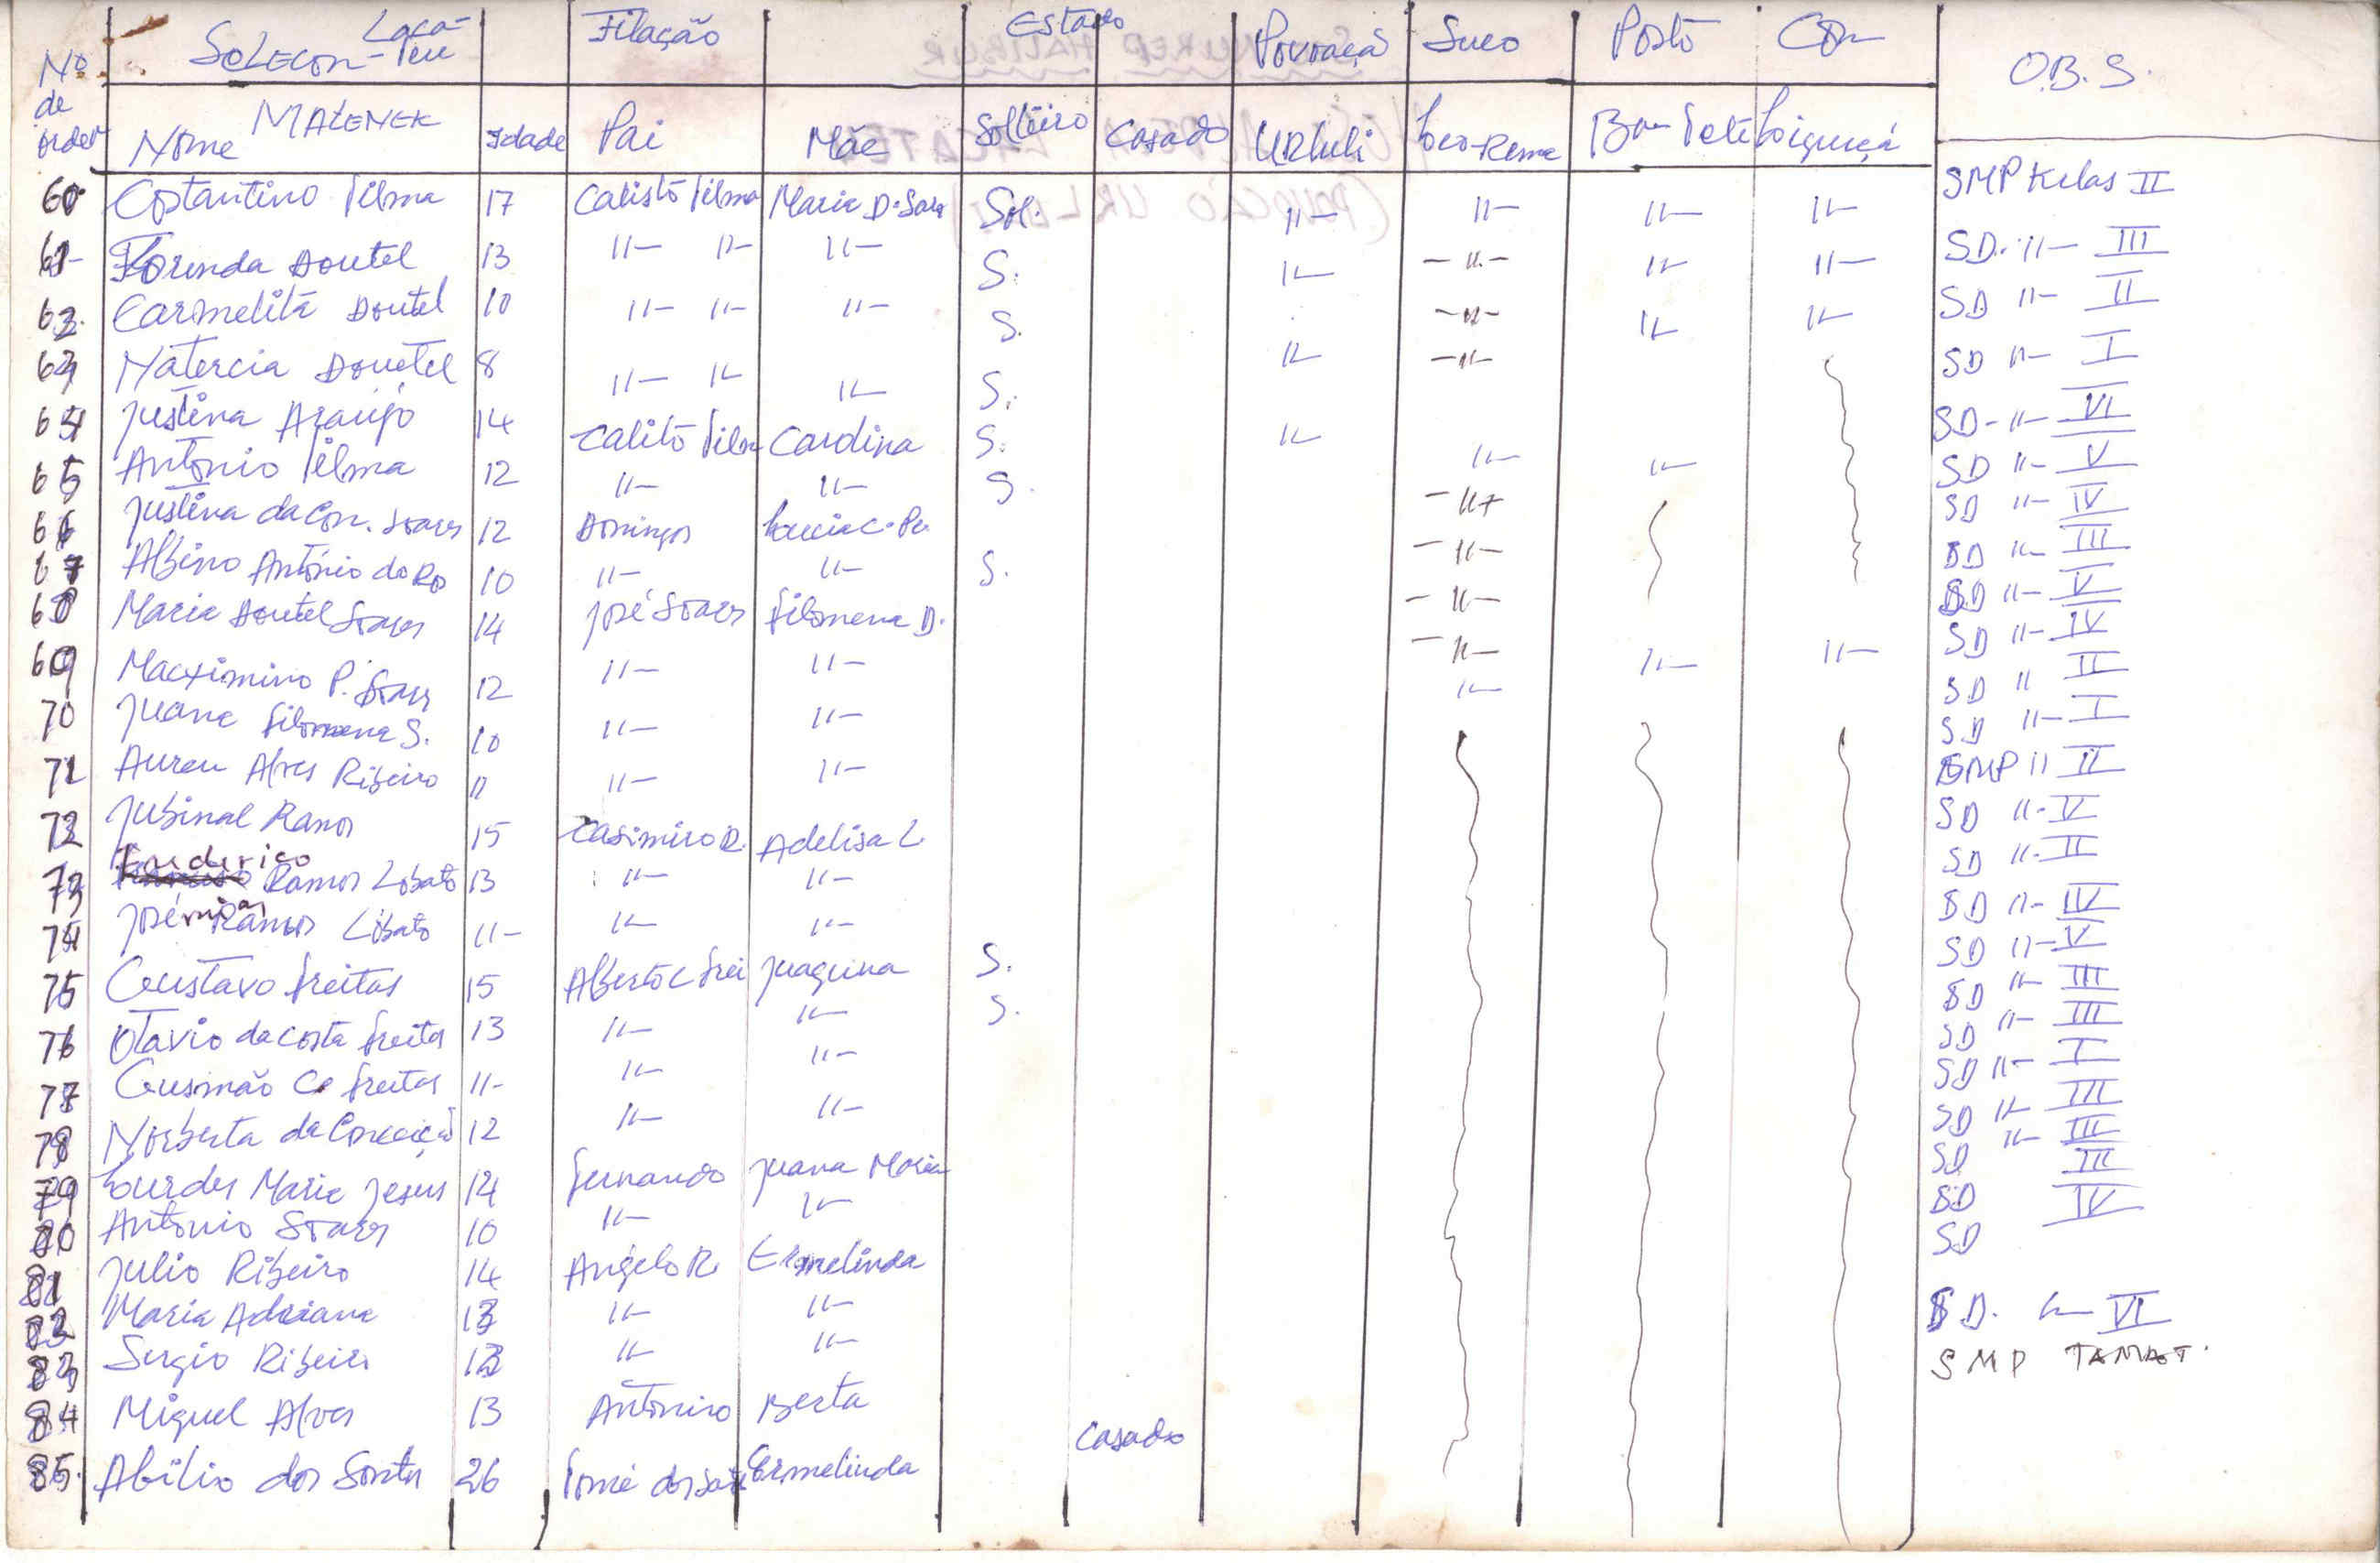 Nº de order SOLECON - Laca-Teu Filação Estado Povoaçã Suco Posto Con O.B.S.
Nome MALENEK Idade Pai Mãe Solteiro Casado URluli
60 Costantino Tilma 17 Calisto Tilma Maria D. Soar Sol. 11- 11- 11- 11- SMP Kelas II
61- Florinda Doutel 13 11- 11- 11- S. 11- -11.- 11- 11- SD. 11- III
62. Carmelita Doutel 10 11- 11- 11- S. -11- 11- 11- SD 11- II
63 Natercia Doutel 8 11- 11- 11- S. 11- -11- SD 11- I
64 Justina Araujo 14 Calito Tilm Carolina S. 11- SD-11- VI
65 Antonio Tilma 12 11- 11- S. 11- 11- SD 11- V
66 Justina da Con. Soares 12 Domingos -11- SD 11- IV
67 Albino António do Ro 10 11- 11- S. -11- SD 11- III
68 Maria Doutel Soares 14 José Soares Filomena D. -11- SD 11- V
69 Macximino P. Soares 12 11- 11- -11- 11- 11- SD 11- IV
70 Juana Filomena S. 10 11- 11- 11- SD 11 II
71 Aureu Alves Ribeiro 11 11- 11- SD 11- I
72 Jubinal Ramos 15 Casimiro R. Adelisa L. SMP 11 II
73 Frederico Ramos Lobato 13 11- 11- SD 11- V
74 José Ramos Lobato 11- 11- 11- SD 11- II
75 Gustavo Freitas 15 Alberto C Frei Juaquina S. SD 11- IV
76 Otavio da Costa Freitas 13 11- 11- S. SD 11- V
77 Gusmão C Freitas 11- 11- 11- SD 11- III
78 Norberta da Conceiçã 12 11- 11- SD 11- III
79 Lourdes Maria Jesus 14 Fernando Juana Maria SD 11- I
80 Antonio Soares 10 11- 11- SD 11- III
81 Julio Ribeiro 14 Angelo R. Ermelinda SD 11- III
82 Maria Adriana 13 11- 11- SD III
83 Sergio Ribeiro 11- 11- SD IV
84 Miguel Alves 13 Antonino Berta SD. 11- VI
85. Abílio dos Santos 26 Tomé dos Sat Ermelinda Casado SMP TAMAT.